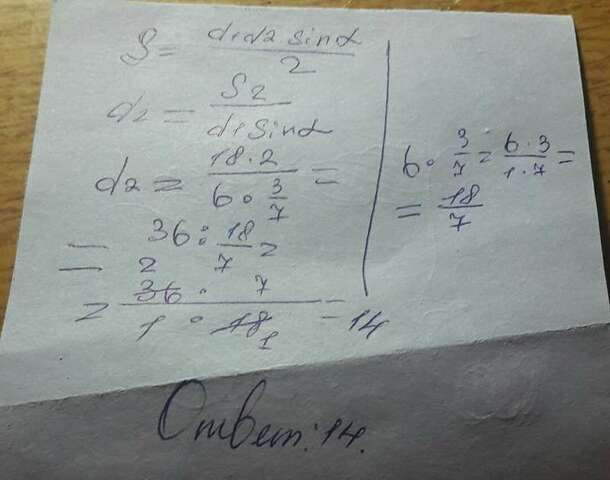 S = d1d2 sinα / 2
d2 = S2 / d1 sinα
d2 = 18·2 / 6·3/7 =
= 36 : 18/7 =
= 36 2 · 7 / 1 · 18 1 = 14
6 · 3/7 = 6·3 / 1·7 =
= 18/7
Ответ: 14.